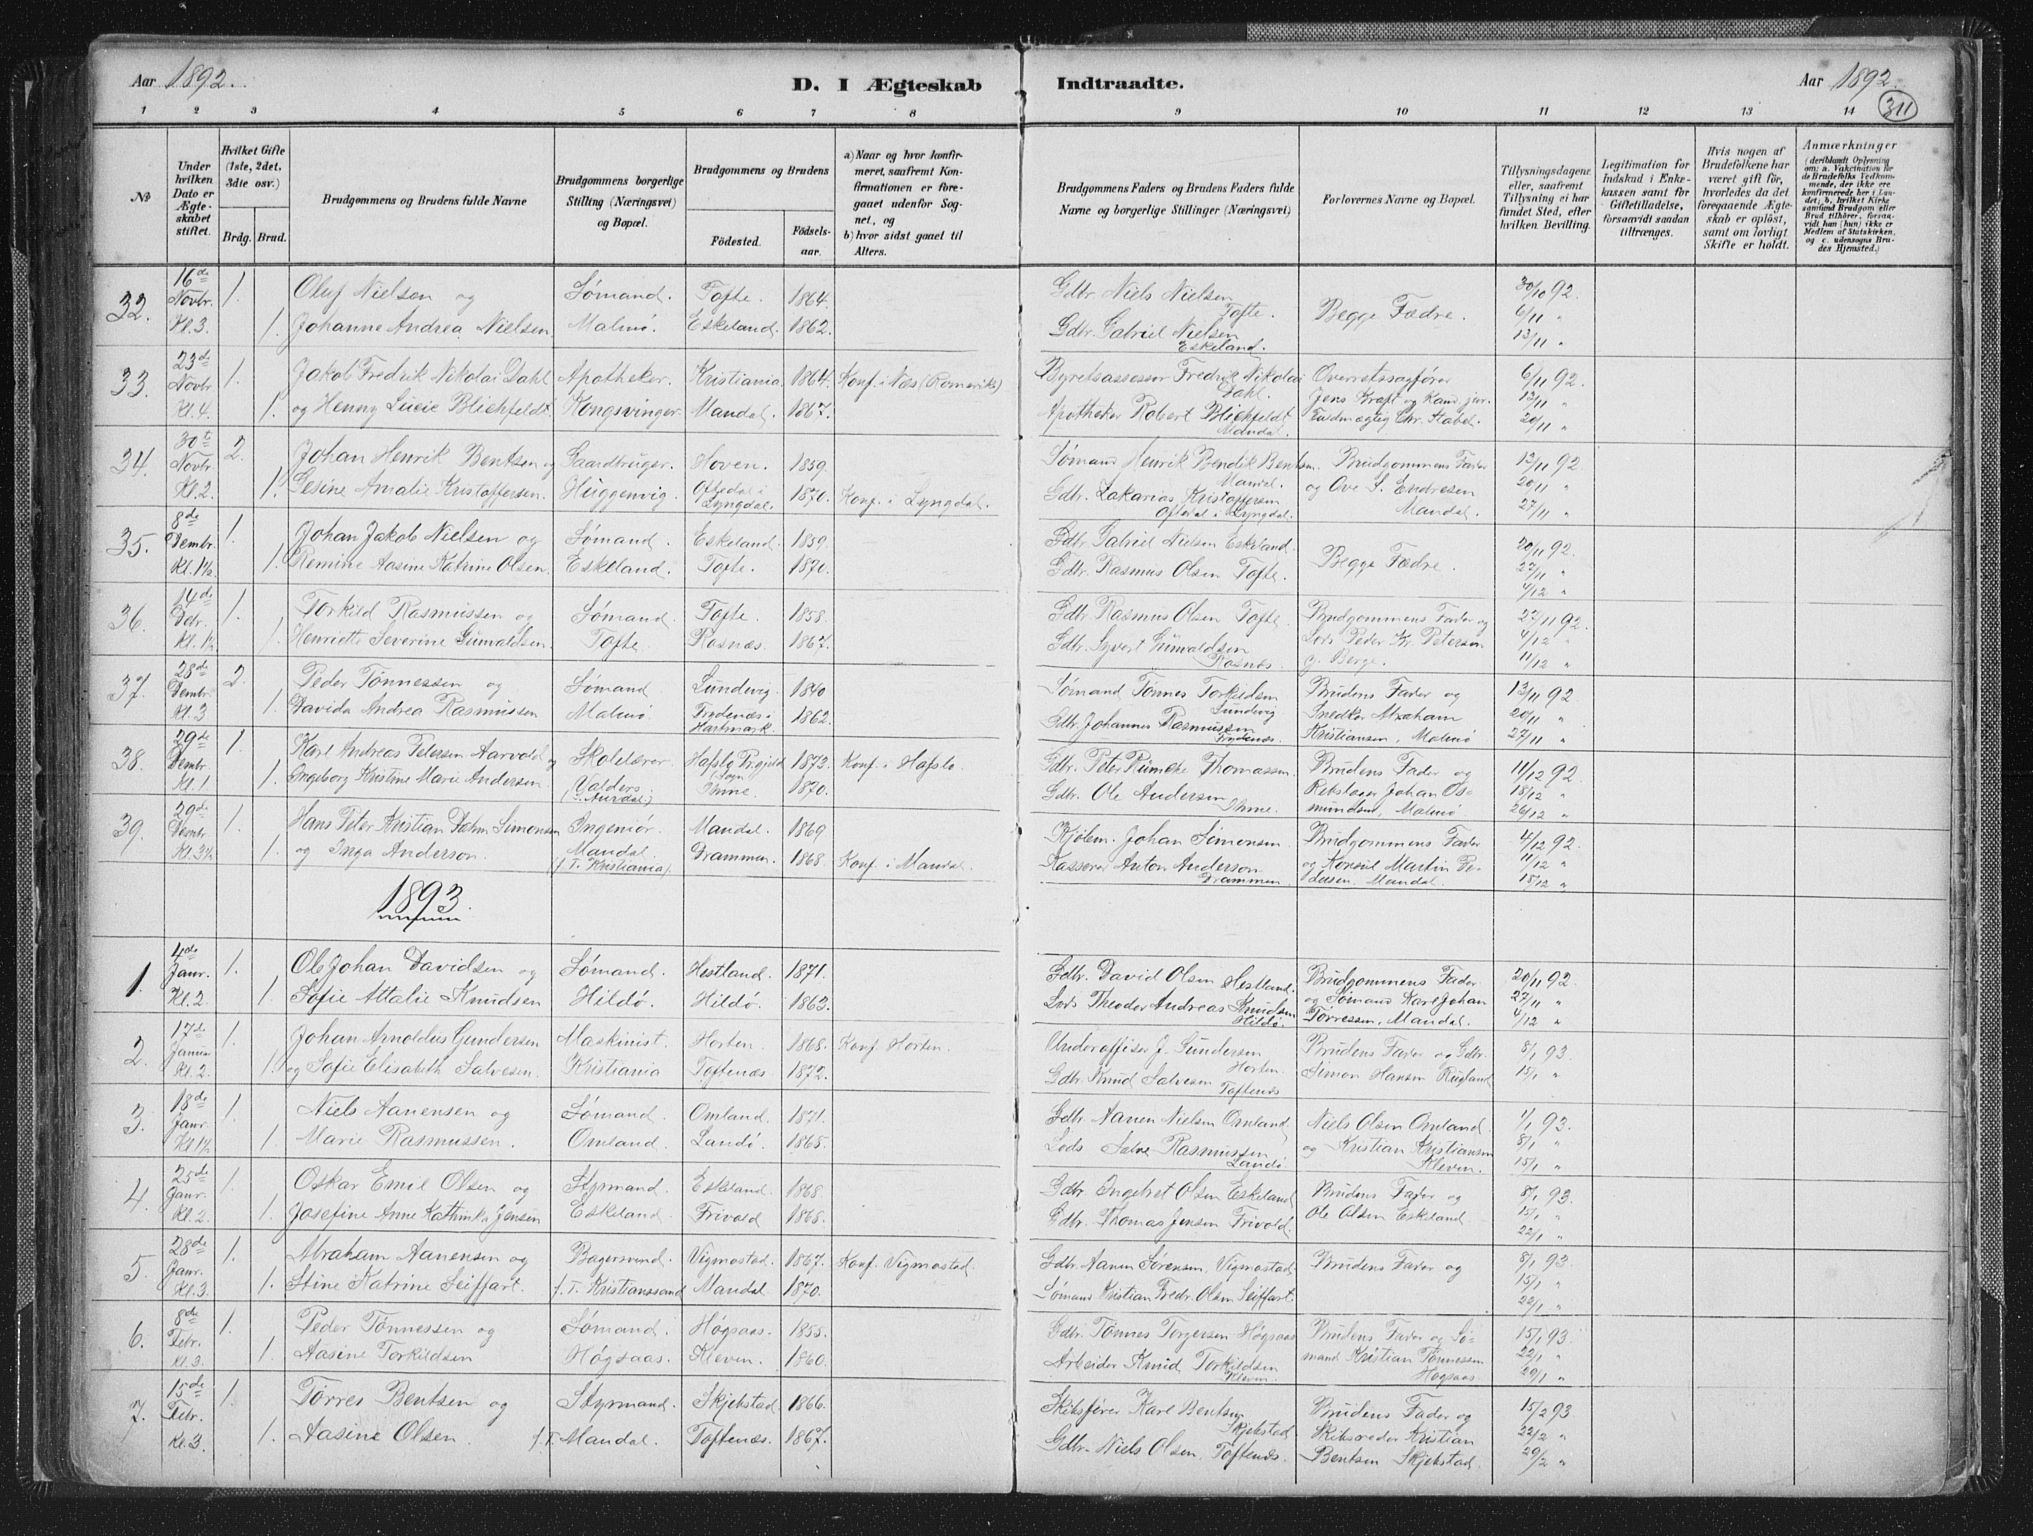 Aar 1892.
D. I Ægteskab Indtraadte.
Aar 1892.
311
1 2 3 4 5 6 7 8 9 10 11 12 13 14
No
Under hvilken Dato er Ægteskabet stiftet.
Hvilket Gifte (1ste, 2det, 3die osv.)
Brdg. Brud.
Brudgommens og Brudens fulde Navne
Brudgommens borgerlige Stilling (Næringsvei) og Bopæl.
Brudgommens og Brudens
Födested.
Födselsaar.
a) Naar og hvor konfirmeret, saafremt Konfirmationen er foregaaet udenfor Sognet, og
b) hvor sidst gaaet til Alters.
Brudgommens Faders og Brudens Faders fulde Navne og borgerlige Stillinger (Næringsvei)
Forlovernes Navne og Bopæl.
Tillysningsdagene eller, saafremt Tillysning ei har fundet Sted, efter hvilken Bevilling.
Legitimation for Indskud i Enkekassen samt for Giftetilladelse, forsaavidt saadan tiltrænges.
Hvis nogen af Brudefolkene har været gift för, hvorledes da det foregaaende Ægteskab er oplöst, samt om lovligt Skifte er holdt.
Anmærkninger
(deriblandt Oplysning om: a. Vaccination for de Brudefolks Vedkommende, der ikke ere konfirmerede her i Landet; b. hvilket Kirkesamfund Brudgom eller Brud tilhörer, forsaavidt han (hun) ikke er Medlem af Statskirken, og c. udensogns Brudes Hjemsted.)
32. 16de Novbr. Kl. 3. 1. 1.
Oluf Nielsen og Sømand. Tofte. 1864.
Johanne Andrea Nielsen Malmø. Eskeland. 1862.
Gdbr. Niels Nielsen Tofte.
Gdbr. Gabriel Nielsen Eskeland.
Begge Fædre.
30/10 92. 6/11 " 13/11 "
33. 23de Novbr Kl. 4. 1. 1.
Jakob Fredrik Nikolai Dahl Apotheker. Kristiania. 1864. Konf. i Næs (Romerike)
og Henny Lucie Blichfeldt Kongsvinger. Mandal. 1867.
Byretsassessor Fredrik Nikolai Dahl.
Apotheker Robert Blichfeldt Mandal.
Overretssagfører Jens Kraft og Kand. jur. Fuldmægtig Chr. Stabel.
6/11 92. 13/11 " 20/11 "
34. 30te Novbr Kl. 2. 2. 1.
Johan Henrik Bentsen og Gaardbruger. Hoven. 1859
Gesine Amalie Kristoffersen. Huggenvig. Oftedal i Lyngdal. 1870. Konf. i Lyngdal.
Sømand Henrik Bendik Bentsen. Mandal.
Gdbr. Zakarias Kristoffersen Oftedal i Lyngdal.
Brudgommens Fader og Ove S. Endresen Mandal.
13/11 92 20/11 " 27/11 "
35. 8de Dembr. Kl. 1½. 1. 1.
Johan Jakob Nielsen og Sømand. Eskeland. 1859.
Remine Aasine Katrine Olsen. Eskeland. Tofte. 1870.
Gdbr. Gabriel Nielsen Eskeland.
Gdbr. Rasmus Olsen Tofte.
Begge Fædre.
20/11 92. 27/11 " 4/12 "
36. 14de Dcbr. Kl. 1½ 1. 1.
Torkild Rasmussen og Sømand. Tofte. 1858.
Henriette Severine Gunvaldsen. Tofte. Rosnæs. 1867.
Gdbr. Rasmus Olsen Tofte.
Gdbr. Syvert Gunvaldsen Rosnæs.
Brudgommens Fader og Lods Peder Kr. Peterson g. Berge.
27/11 92. 4/12 " 11/12 "
37. 28de Dembr. Kl. 3 2. 1.
Peder Tønnessen og Sømand. Lundevig. 1840
Davida Andrea Rasmussen Malmø. Frydenæs i Hartmark. 1862.
Sømand Tønnes Torkildsen Lundevig
Gdbr. Johannes Rasmussen Frydenæs.
Brudens Fader og Snedker Abraham Kristiansen, Malmø
13/11 92. 20/11 " 27/11 "
38. 29de Dembr. Kl. 1 1. 1.
Karl Andreas Petersen Aarvold og Skolelærer. Hafslo Prgjeld 1872. Konf. i Hafslo.
Ingeborg Kristine Marie Andersen. (Valders. S. Aurdal.) Ihme. 1870.
Gdbr. Peter Rumohr Thomassen.
Gdbr. Ole Andersen Ihme.
Brudens Fader og Rebslager Johan Osmundsen, Malmø
11/12 92. 18/12 " 26/12 "
39. 29de Dembr Kl. 3½ 1. 1.
Hans Peter Kristian Dahm Simonsen Ingeniør. Mandal. 1869
og Inga Anderson. Mandal (f. T. Kristiania). Drammen. 1868. Konf. i Mandal.
Kjøbm. Johan Simonsen.
Kasserer Anton Anderson Drammen.
Brudgommens Fader og Konsul Martin Pedersen, Mandal.
4/12 92. 11/12 " 18/12 "
1893.
1. 4de Janr. Kl. 2. 1. 1.
Ole Johan Davidsen og Sømand. Hestland. 1871.
Sofie Attalie Knudsen Hildø. Hildø. 1863.
Gdbr. David Olsen Hestland.
Lods Theodor Andreas Knudsen Hildø.
Brudgommens Fader og Sømand Karl Johan Torressen, Mandal.
20/11 92. 27/11 " 4/12 "
2. 17de Januar Kl. 2. 1. 1.
Johan Arnoldus Gundersen Maskinist. Horten. 1868. Konf. Horten.
og Sofie Elisabeth Salvesen. Kristiania Toftenæs. 1872.
Underoffiser J. Gundersen Horten.
Gdbr. Knud Salvesen Toftenæs
Brudens Fader og Gdbr. Simon Hansen Rugland
8/1 93. 15/1 "
3. 18de Janr. Kl. 1½ 1. 1.
Niels Aanensen og Sømand. Omland. 1871.
Marie Rasmussen. Omland. Landø. 1865.
Gdbr. Aanen Nielsen Omland.
Lods Salve Rasmussen Landø
Niels Olsen Omland og Kristian Kristiansen Kleven.
1/1 93. 8/1 " 15/1 "
4. 25de Janr. Kl. 2. 1. 1.
Oskar Emil Olsen og Styrmand. Eskeland. 1868.
Josefine Anne Kathinka Jensen Eskeland. Frivold 1868.
Gdbr Ingebret Olsen Eskeland
Gdbr. Thomas Jensen Frivold.
Brudens Fader og Ole Olsen Eskeland.
8/1 93. 15/1 " 22/1 "
5. 28de Janr. Kl. 3. 1. 1.
Abraham Aanensen og Bagersvend. Vigmostad. 1867. Konf. Vigmostad.
Stine Katrine Seiffart. f. T. Kristianssand Mandal. 1870.
Gdbr. Aanen Sørensen, Vigmostad.
Sømand Kristian Fredr. Olsen Seiffart.
Brudens Fader og
8/1 93. 15/1 " 22/1 "
6. 8de Febr. Kl. 3. 1. 1.
Peder Tønnessen og Sømand. Høgsaas. 1855.
Aasine Torkildsen Høgsaas. Kleven. 1860.
Gdbr. Tønnes Torgersen Høgsaas
Arbeider Knud Torkildsen Kleven.
Brudens Fader og Sømand Kristian Tønnessen Høgsaas
15/1 93. 22/1 " 29/1 "
7. 15de Febr. Kl. 3. 1. 1.
Tørres Bentsen og Styrmand. Skjebstad 1866.
Aasine Olsen. f. T. Mandal. Toftenæs. 1867.
Skibsfører Karl Bentsen Skjebstad
Gdbr. Niels Olsen, Toftenæs.
Brudens Fader og Skibsreder Kristian Bentsen Skjebstad.
15/2 93 22/2 " 29/2 "